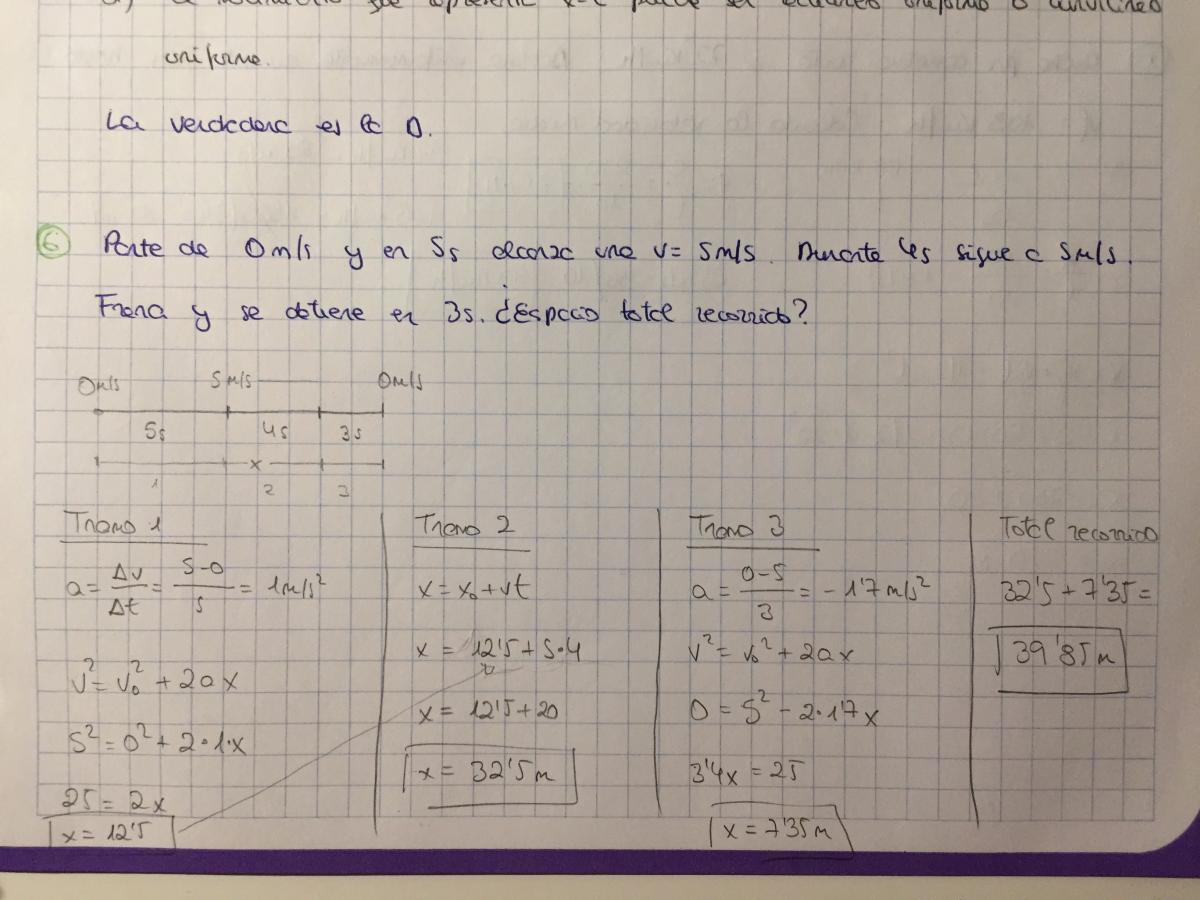 uniforme.
La verdadera es la D.
6 Parte de 0m/s y en 5s alcanza una v= 5m/s. Durante 4s sigue a 5m/s.
Frena y se detiene en 3s. ¿Espacio total recorrido?
0m/s 5m/s 0m/s
5s 4s 3s
x
1 2 3
Tramo 1
a= Δv/Δt = 5-0/5 = 1m/s²
v²= v₀² + 2ax
5² = 0² + 2·1·x
25 = 2x
x = 12'5
Tramo 2
x = x₀ + vt
x = 12'5 + 5·4
x = 12'5 + 20
x = 32'5m
Tramo 3
a = 0-5/3 = -1'7 m/s²
v² = v₀² + 2ax
0 = 5² - 2·1'7x
3'4x = 25
x = 7'35m
Total recorrido
32'5 + 7'35 =
39'85m